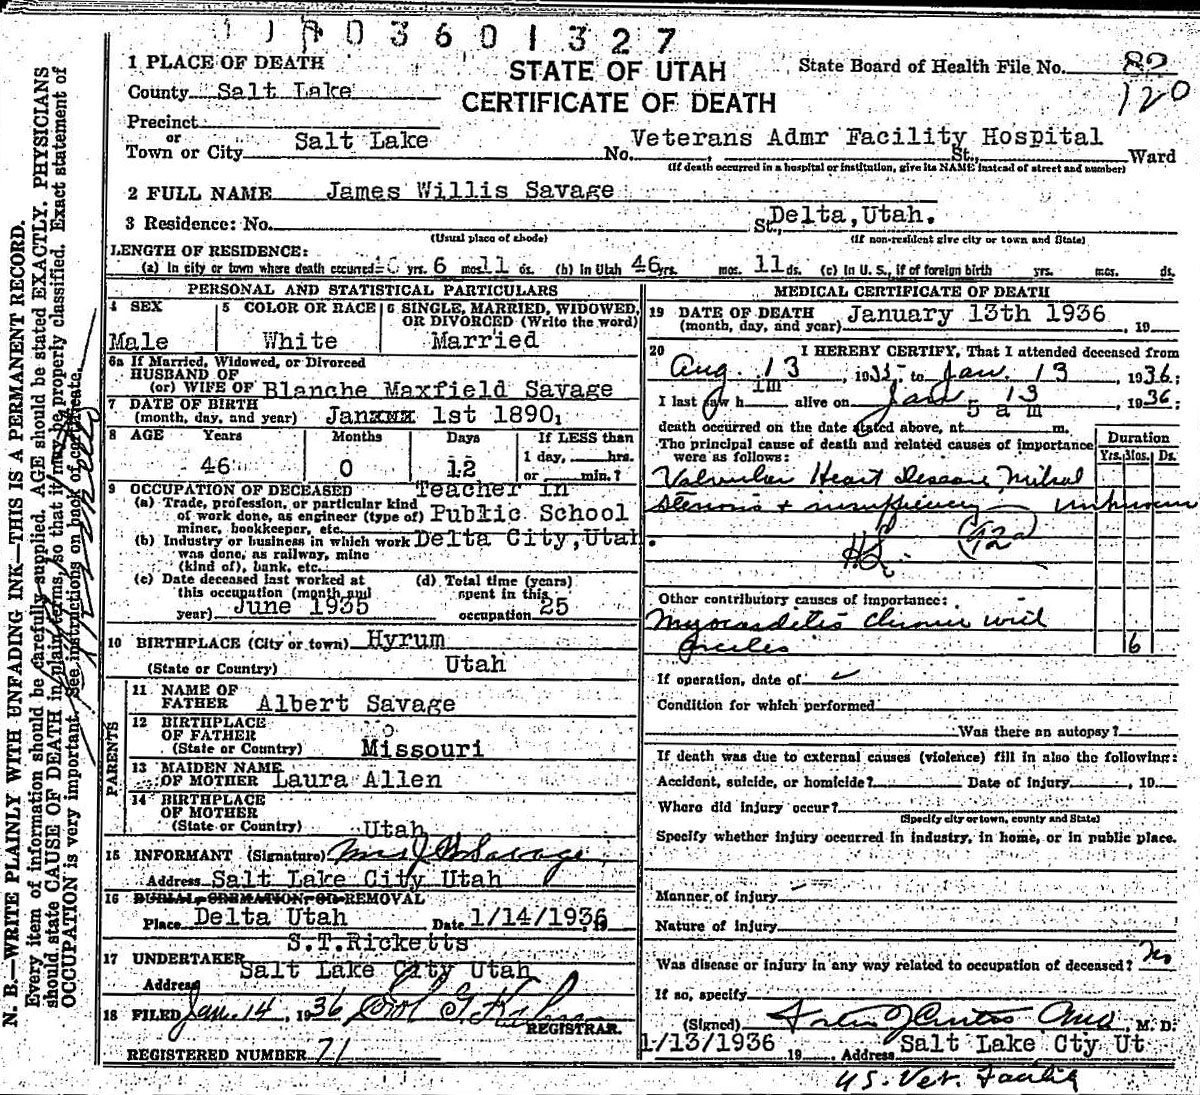 03601327
1 PLACE OF DEATH
STATE OF UTAH
CERTIFICATE OF DEATH
State Board of Health File No. 82
120
County Salt Lake
Precinct
or
Town or City Salt Lake No. Veterans Admr Facility Hospital St., Ward
(If death occurred in a hospital or institution, give its NAME instead of street and number)
2 FULL NAME James Willis Savage
3 Residence: No. St. Delta, Utah.
(Usual place of abode) (If non-resident give city or town and State)
LENGTH OF RESIDENCE:
(a) In city or town where death occurred yrs. 6 mos. 11 ds. (b) In Utah 46 yrs. mos. 11 ds. (c) In U. S., if of foreign birth yrs. mos. ds.
PERSONAL AND STATISTICAL PARTICULARS
4 SEX
Male
5 COLOR OR RACE
White
6 SINGLE, MARRIED, WIDOWED,
OR DIVORCED (Write the word)
Married
6a If Married, Widowed, or Divorced
HUSBAND OF
(or) WIFE OF Blanche Maxfield Savage
7 DATE OF BIRTH
(month, day, and year) Jan 1st 1890
8 AGE Years Months Days If LESS than
1 day, hrs.
46 0 12 or min.?
9 OCCUPATION OF DECEASED Teacher in
(a) Trade, profession, or particular kind
of work done, as engineer (type of) Public School
miner, bookkeeper, etc.
(b) Industry or business in which work Delta City, Utah.
was done, as railway, mine
(kind of), bank, etc.
(c) Date deceased last worked at
this occupation (month and
year) June 1935
(d) Total time (years)
spent in this
occupation 25
10 BIRTHPLACE (City or town) Hyrum
(State or Country) Utah
PARENTS
11 NAME OF
FATHER Albert Savage
12 BIRTHPLACE
OF FATHER
(State or Country) Missouri
13 MAIDEN NAME
OF MOTHER Laura Allen
14 BIRTHPLACE
OF MOTHER
(State or Country) Utah
15 INFORMANT (Signature) Mrs J W Savage
Address Salt Lake City Utah
16 BURIAL, CREMATION, OR REMOVAL
Place Delta Utah Date 1/14/1936, 19
S.T.Ricketts
17 UNDERTAKER
Salt Lake City Utah
Address
18 FILED Jan. 14, 1936
REGISTRAR.
REGISTERED NUMBER 71
MEDICAL CERTIFICATE OF DEATH
19 DATE OF DEATH
(month, day, and year) January 13th 1936, 19
20 I HEREBY CERTIFY, That I attended deceased from
Aug. 13, 1935 to Jan. 13, 1936;
I last saw him alive on Jan 13, 1936;
death occurred on the date stated above, at 5 a m m.
The principal cause of death and related causes of importance
were as follows:
Duration
Yrs. Mos. Ds.
Valvular Heart Disease Mitral
Stenosis + insufficiency unknown
(92a)
Other contributory causes of importance:
Myocarditis Chronic
6
If operation, date of
Condition for which performed
Was there an autopsy?
If death was due to external causes (violence) fill in also the following:
Accident, suicide, or homicide? Date of injury, 19
Where did injury occur?
(Specify city or town, county and State)
Specify whether injury occurred in industry, in home, or in public place.
Manner of injury
Nature of injury
Was disease or injury in any way related to occupation of deceased? No
If so, specify
(Signed) M. D.
1/13/1936 19 Address Salt Lake Cty Ut
U.S. Vet. Facility
N. B.—WRITE PLAINLY WITH UNFADING INK—THIS IS A PERMANENT RECORD.
Every item of information should be carefully supplied. AGE should be stated EXACTLY. PHYSICIANS
should state CAUSE OF DEATH in plain terms, so that it may be properly classified. Exact statement of
OCCUPATION is very important. See instructions on back of certificate.